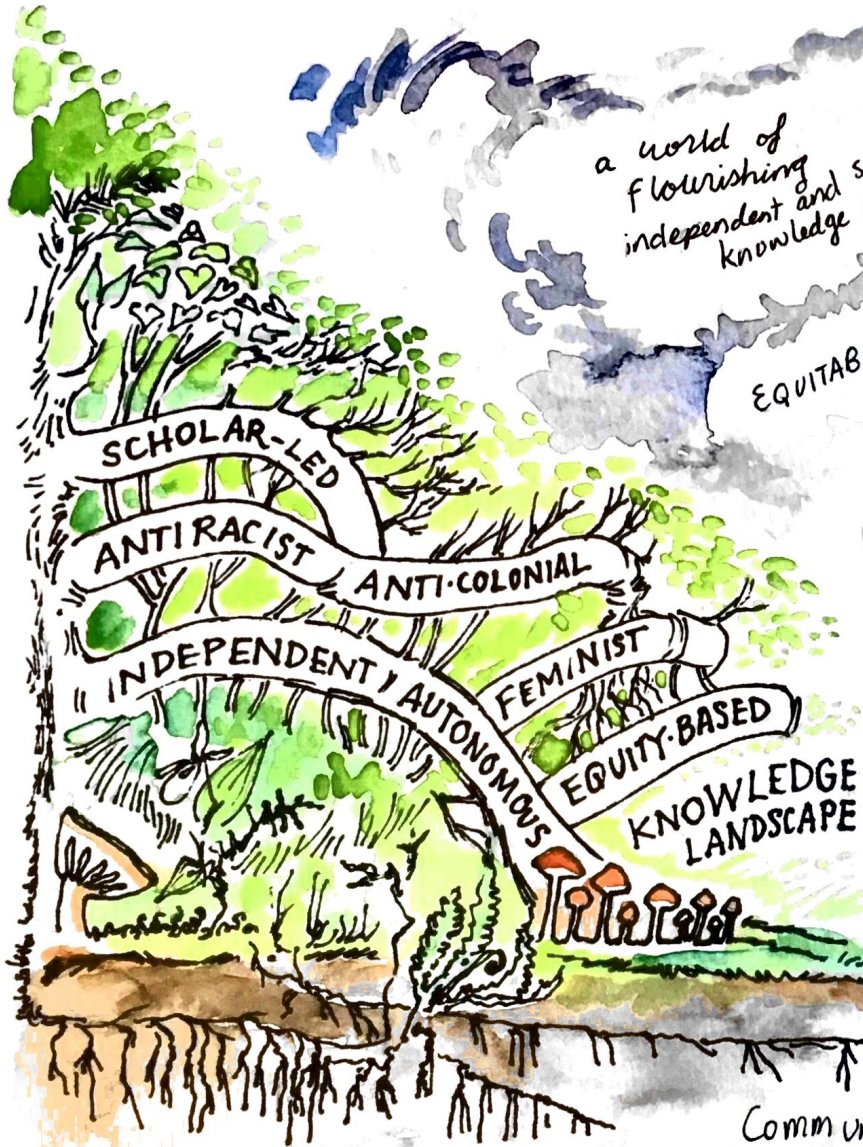 a world of
flourishing
independent and
knowledge
SCHOLAR-LED
ANTIRACIST
ANTI·COLONIAL
INDEPENDENT
AUTONOMOUS
FEMINIST
EQUITY·BASED
KNOWLEDGE
LANDSCAPE